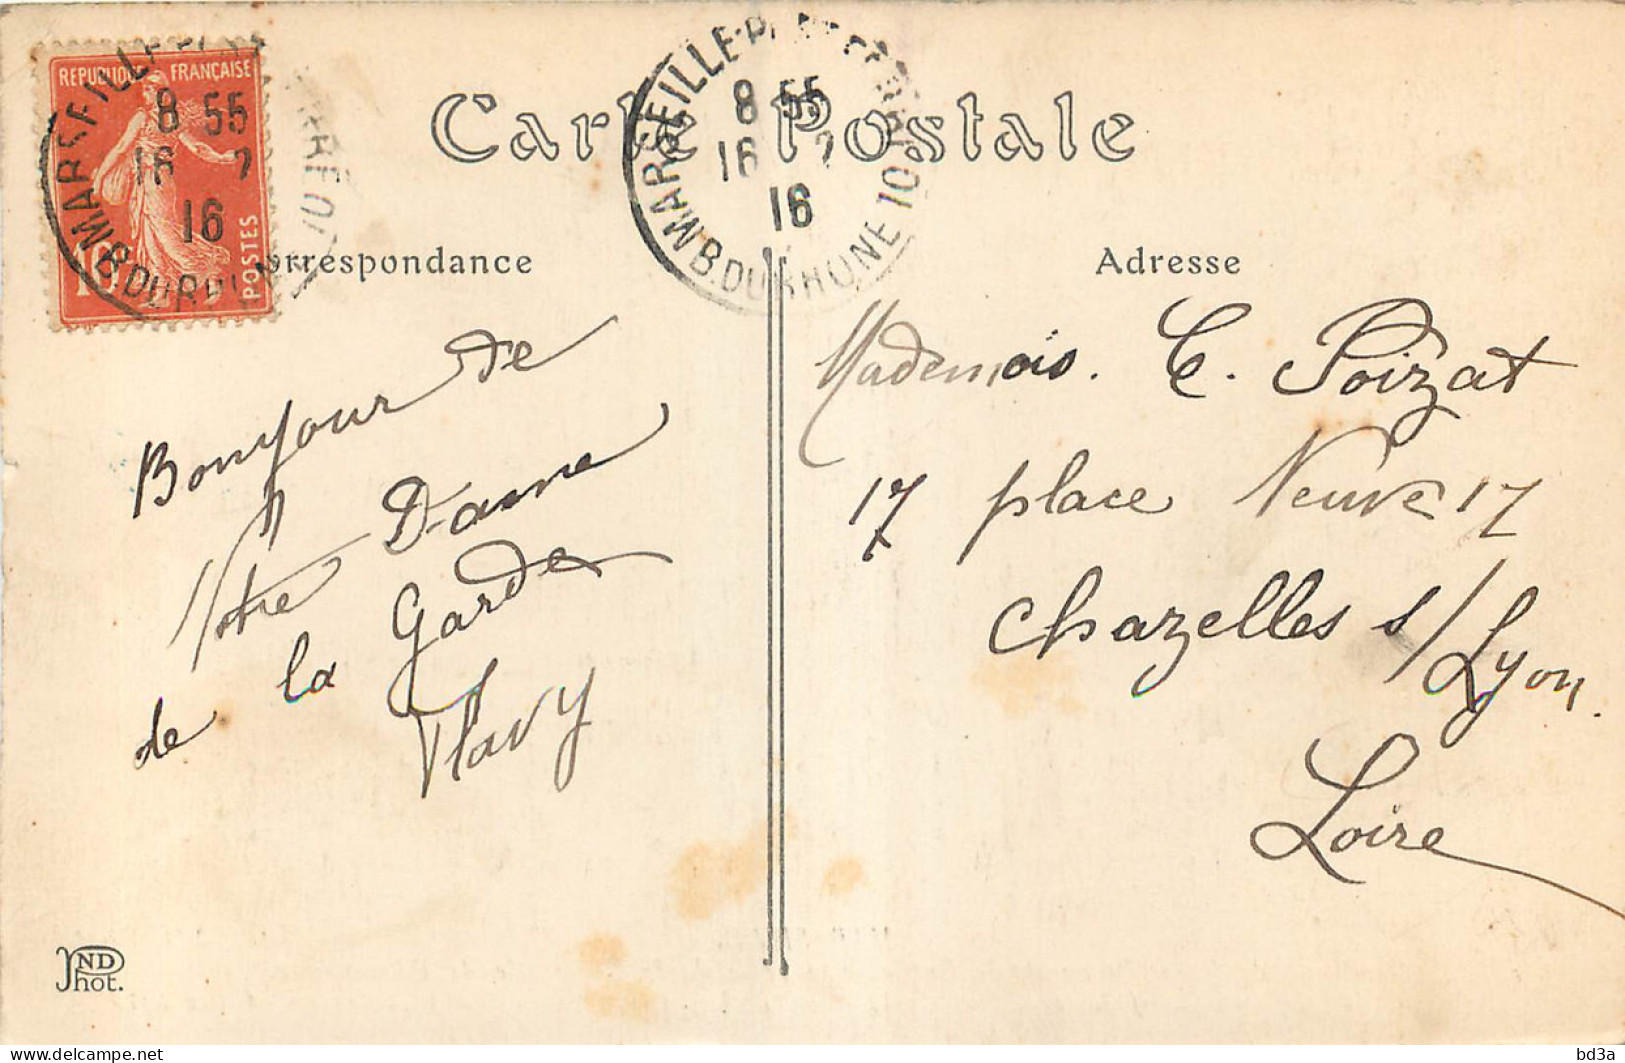 Carte Postale
REPUBLIQUE FRANÇAISE
10
POSTES
MARSEILLE
8 55
16 7
16
B. DU RHONE
MARSEILLE-P
8 55
16 7
16
B. DU RHONE
Correspondance
Adresse
Bonjour de
Notre Dame
de la Garde
Flavy
Mademois. C. Poizat
17 place Neuve 17
Chazelles s/Lyon.
Loire
ND
Phot.
bd3a